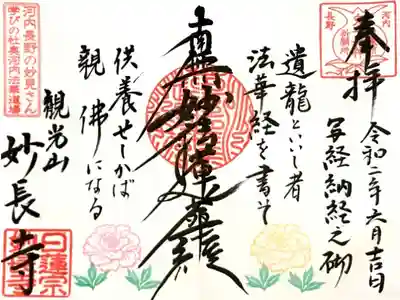 奉拝
令和二年六月吉日
写経納経之砌
遺龍といし者
法華経を書き
南無妙法蓮華経
供養せしかば
親佛になる
観光山
妙長寺
河内長野の妙見さん
学びの社奥河内法華道場
河内
長野
祈願所
日蓮宗